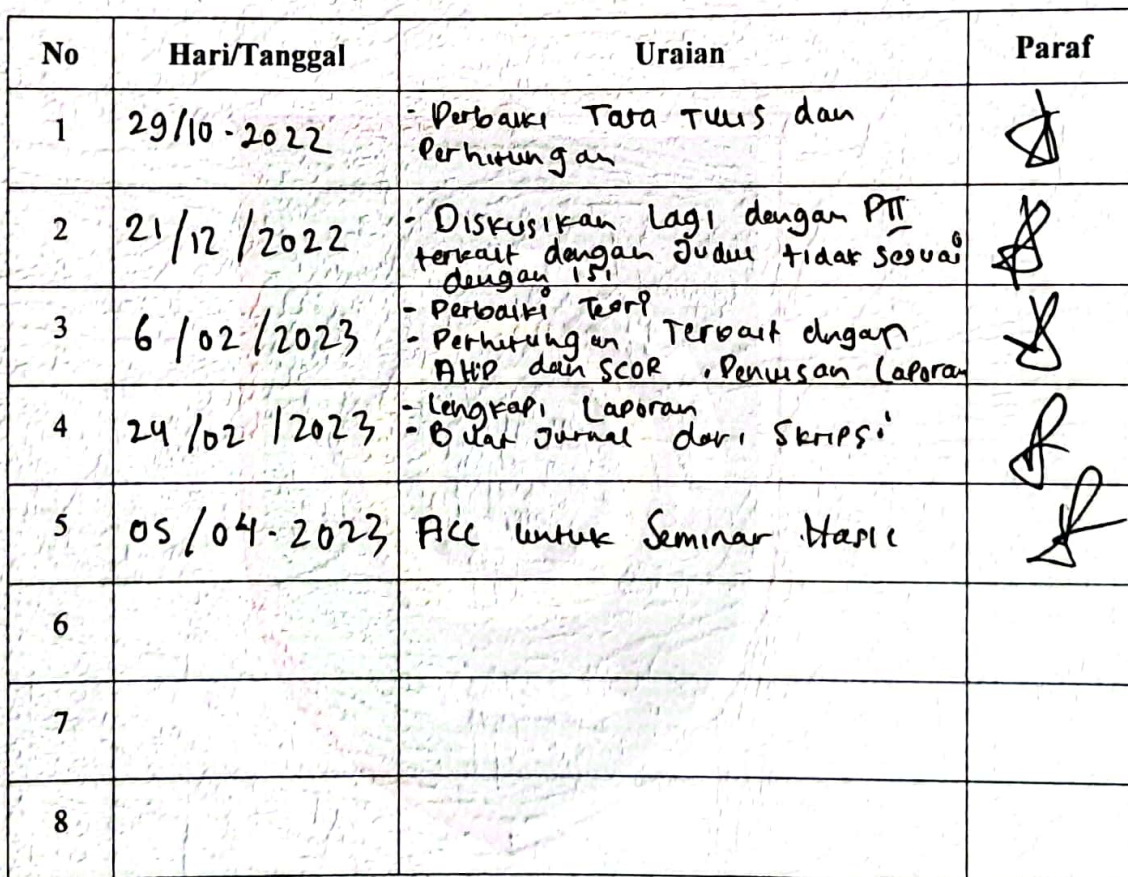 No Hari/Tanggal Uraian Paraf
1 29/10-2022 - Perbaiki Tata Tulis dan
Perhitungan
2 21/12/2022 - Diskusikan Lagi dengan PII
terkait dengan Judul tidak sesuai
dengan isi
3 6/02/2023 - Perbaiki Teori
- Perhitungan Terkait dengan
AHP dan SCOR . Penulisan Laporan
4 24/02/2023 - Lengkapi Laporan
- Buat Jurnal dari Skripsi
5 05/04-2023 ACC untuk Seminar Hasil
6
7
8